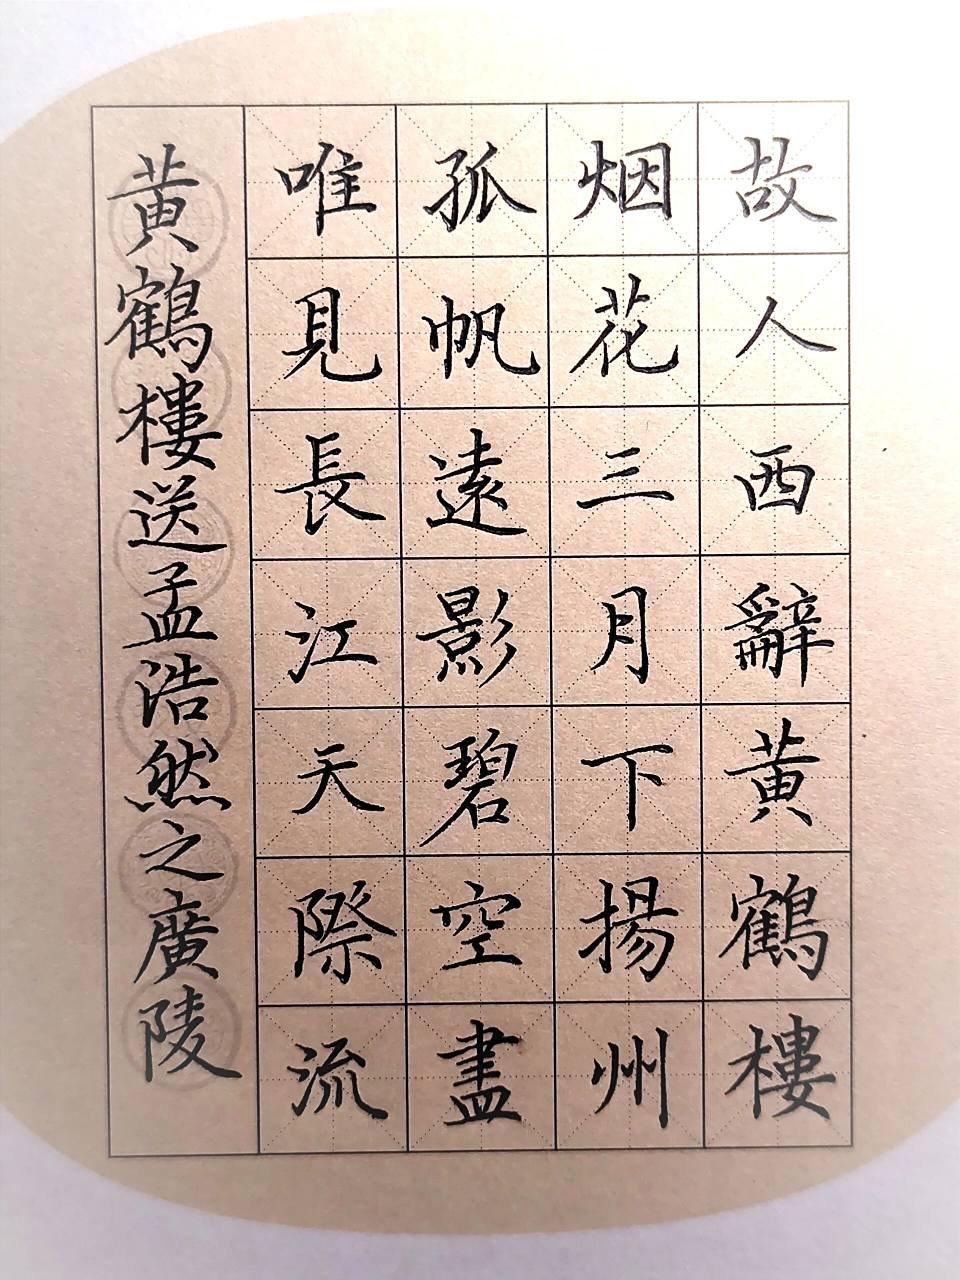 故人西辭黄鶴樓
烟花三月下揚州
孤帆遠影碧空盡
唯見長江天際流
黄鶴樓送孟浩然之廣陵